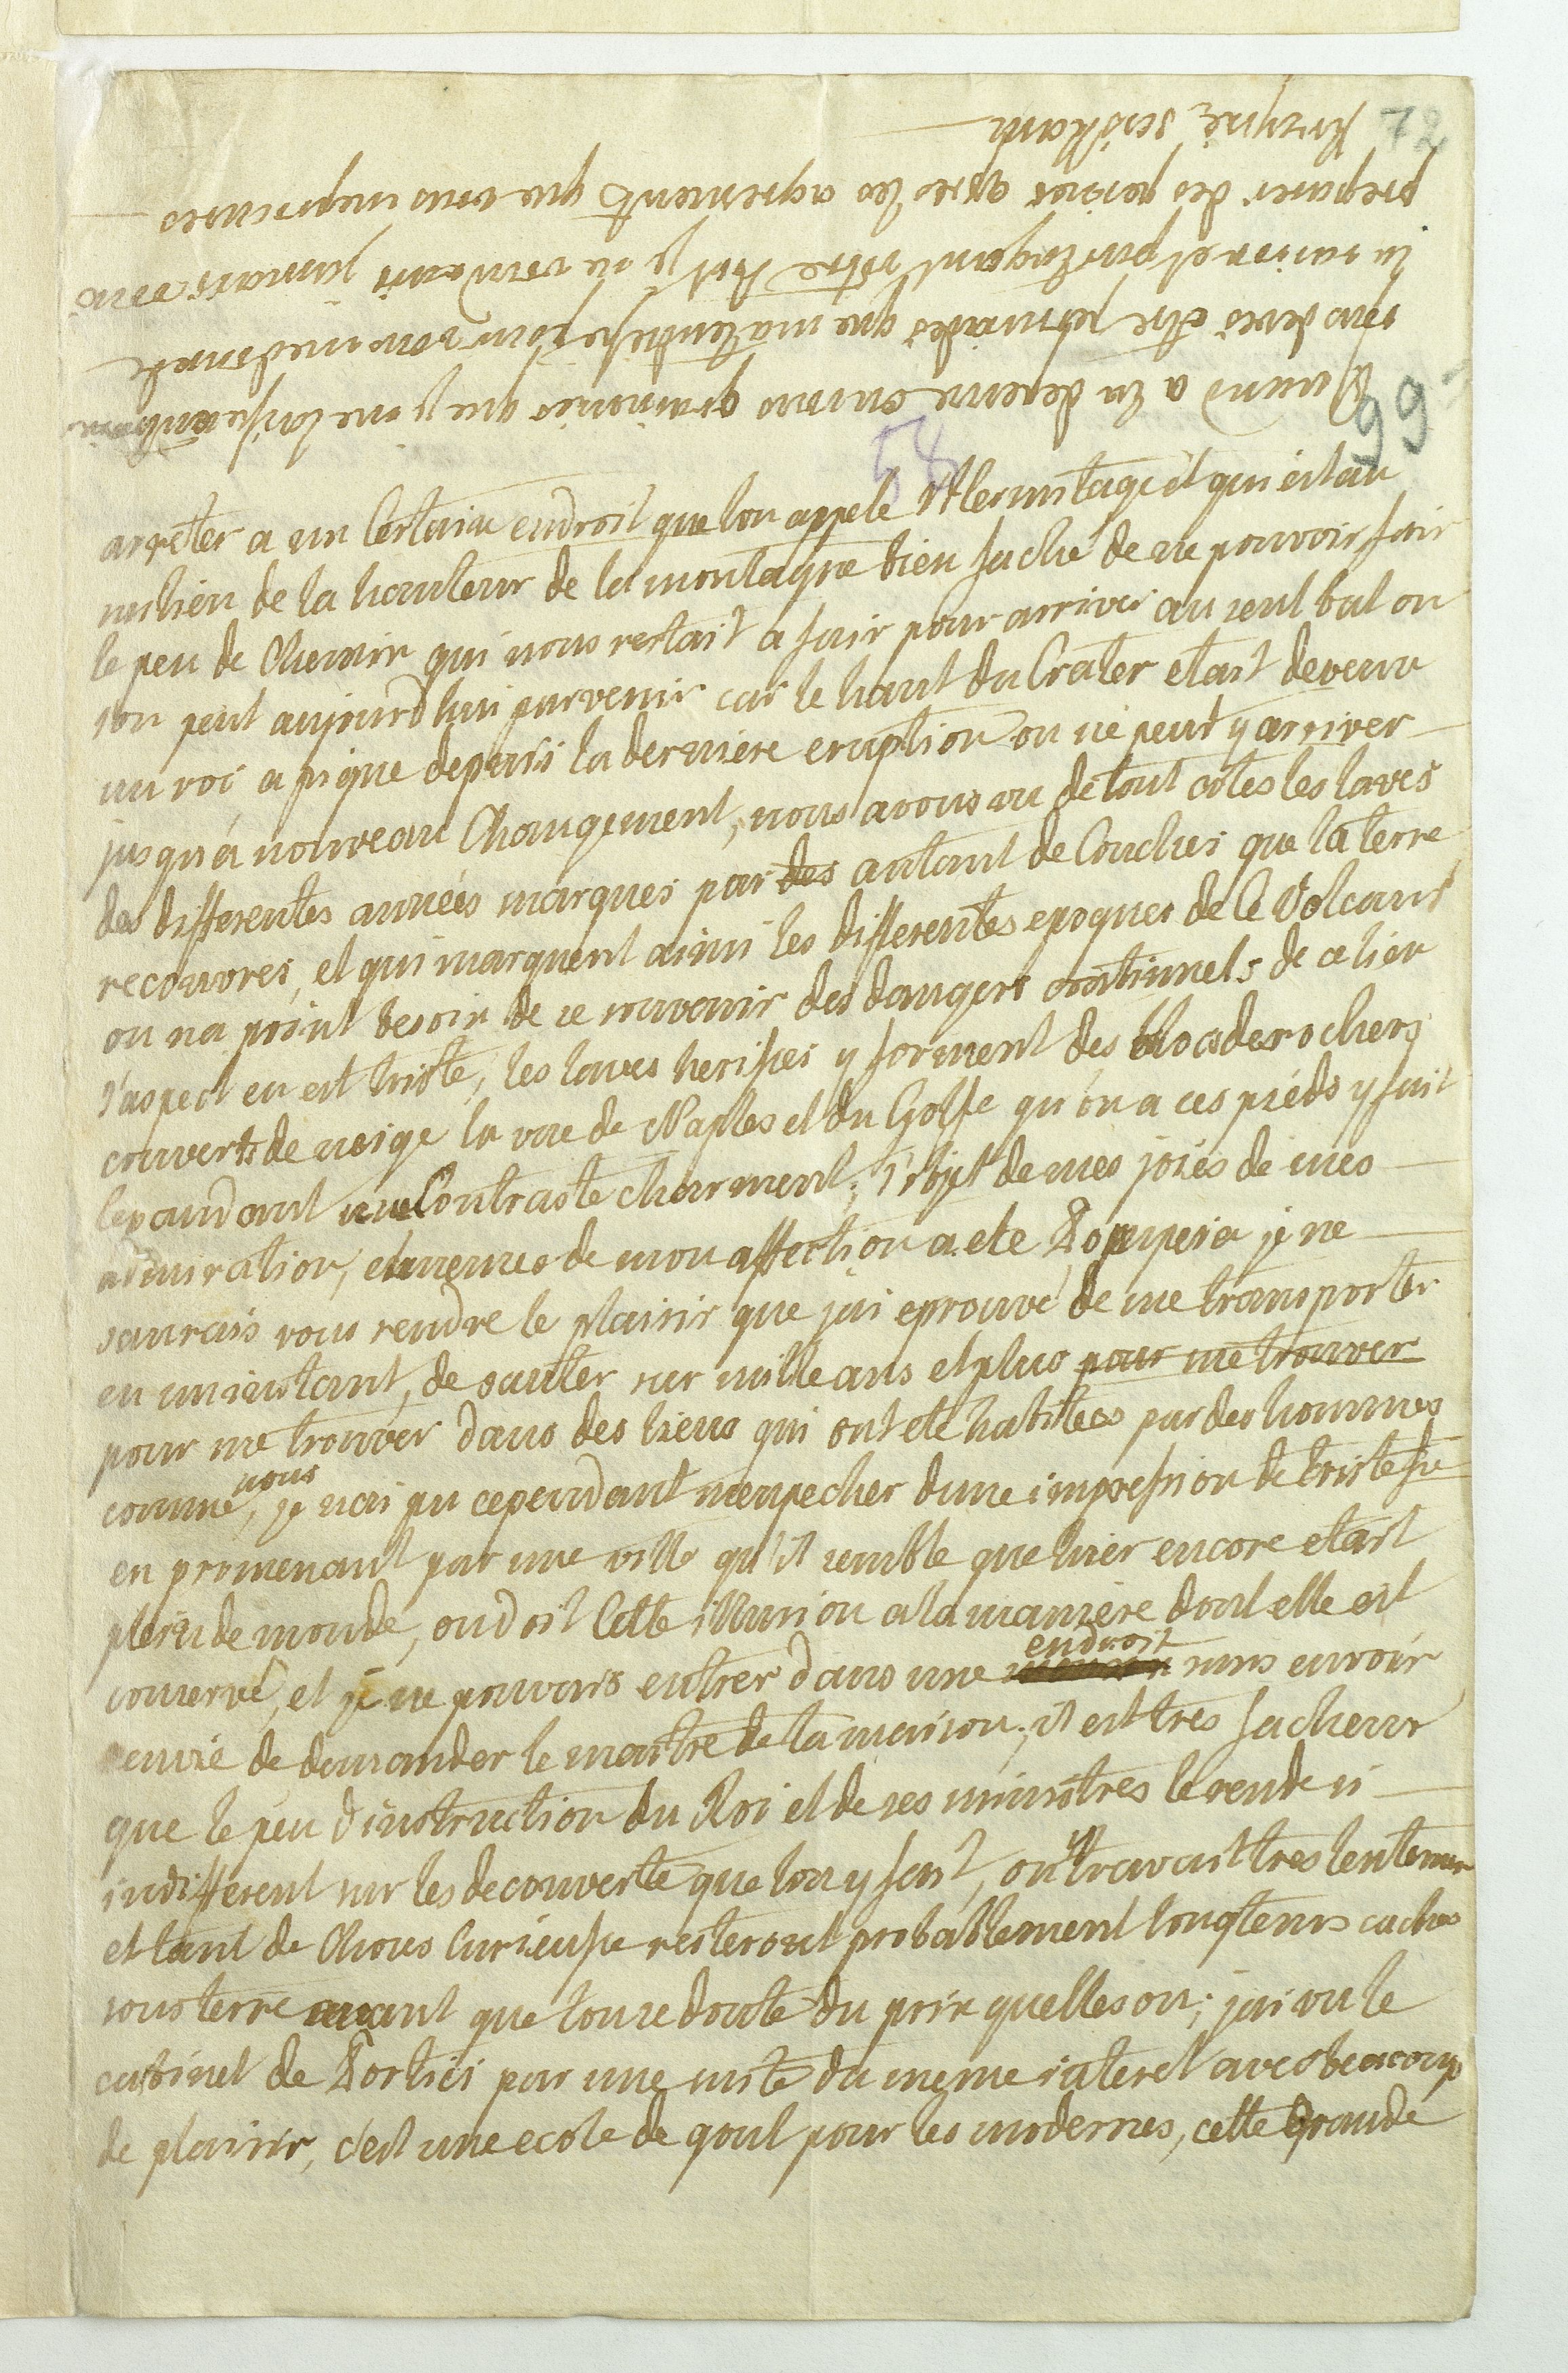 72
99
58
Quand a la derenie
vous devés etre persuadés que ma tendresse pour vous me donnerle
la raison et partageant votre sort je ne voudrais jamais vous
preparer des peines apres les agrements que vous
arreter a un Certain endroit que lon appele Hermitage et qui est au
milieu de la hauteur de la montagne bien faché de ne pouvoir fair
le peu de Chemin qui nous restait a fair pour arriver au seul but ou
son peut aujourdhui parvenir car le haut du Crater etait devenu
un roc a pique depuis la derniere eruption on ne peut y arriver
jusqu'á nouveau Changement, nous avons vu de tout cotés les laves
des differentes années marques par des autant de Couches que la terre
recouvres, et qui marquent ainsi les differentes epoques de Ce Volcans
on na point besoin de ce souvenir des dangers continuels de ce lieu
l'aspect en est triste, les laves herisses y forment des blocs de rochers
couverts de neige la vue de Naples et du Golffe qu'on a ces pieds y fait
cepandant une Contraste charment; l'objet de mes joies de mes
admiration, et memes de mon affection a ete Pompeia je ne
saurais vous rendre le plaisir que jai eprouvé de me transporter
en un instant, de sauter sur mille ans et plus pour me trouver
pour me trouver dans des lieus qui ont ete habitees par des hommes
comme nous, je nai pu cependant mempecher dune impression de tristesse
en promenant par une ville qu'il semble que hier encore etait
plein de monde, on doit Cette illusion a la maniere dont elle est
conservé, et je ne pouvais entrer dans une endroit sans avoir
lenvie de demander le maitre de la maison; il est tres facheux
que le peu dinstruction du Roi et de ses ministres le rende si
indifferent sur les decouverte que lon y fait, on y travait tres lentement
et tant de Choses Curieuse resteront probablement longtems caches
sous terre avant que lon se doute du prix quelles on; jai vu le
cabinet de Portici par une suite du meme interet avec beaucoup
de plaisir, c'est une ecole de gout pour les modernes, cette grande